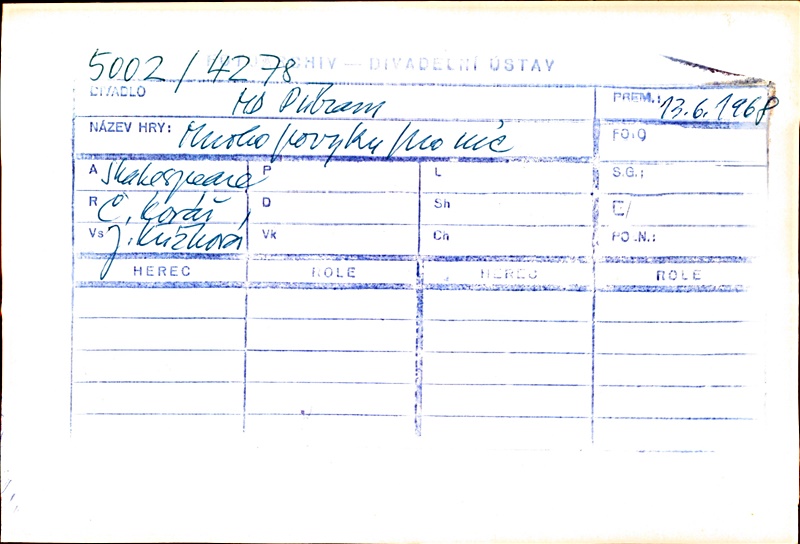 5002/4278
FOTOARCHIV — DIVADELNÍ ÚSTAV
DIVADLO MD Příbram PREM.: 13.6.1968
NÁZEV HRY: Mnoho povyku pro nic FOTO
A Shakespeare P L S.G.:
R Č. Kovář D Sh Č/
Vs J. Kužková Vk Ch PO.N.:
HEREC ROLE HEREC ROLE